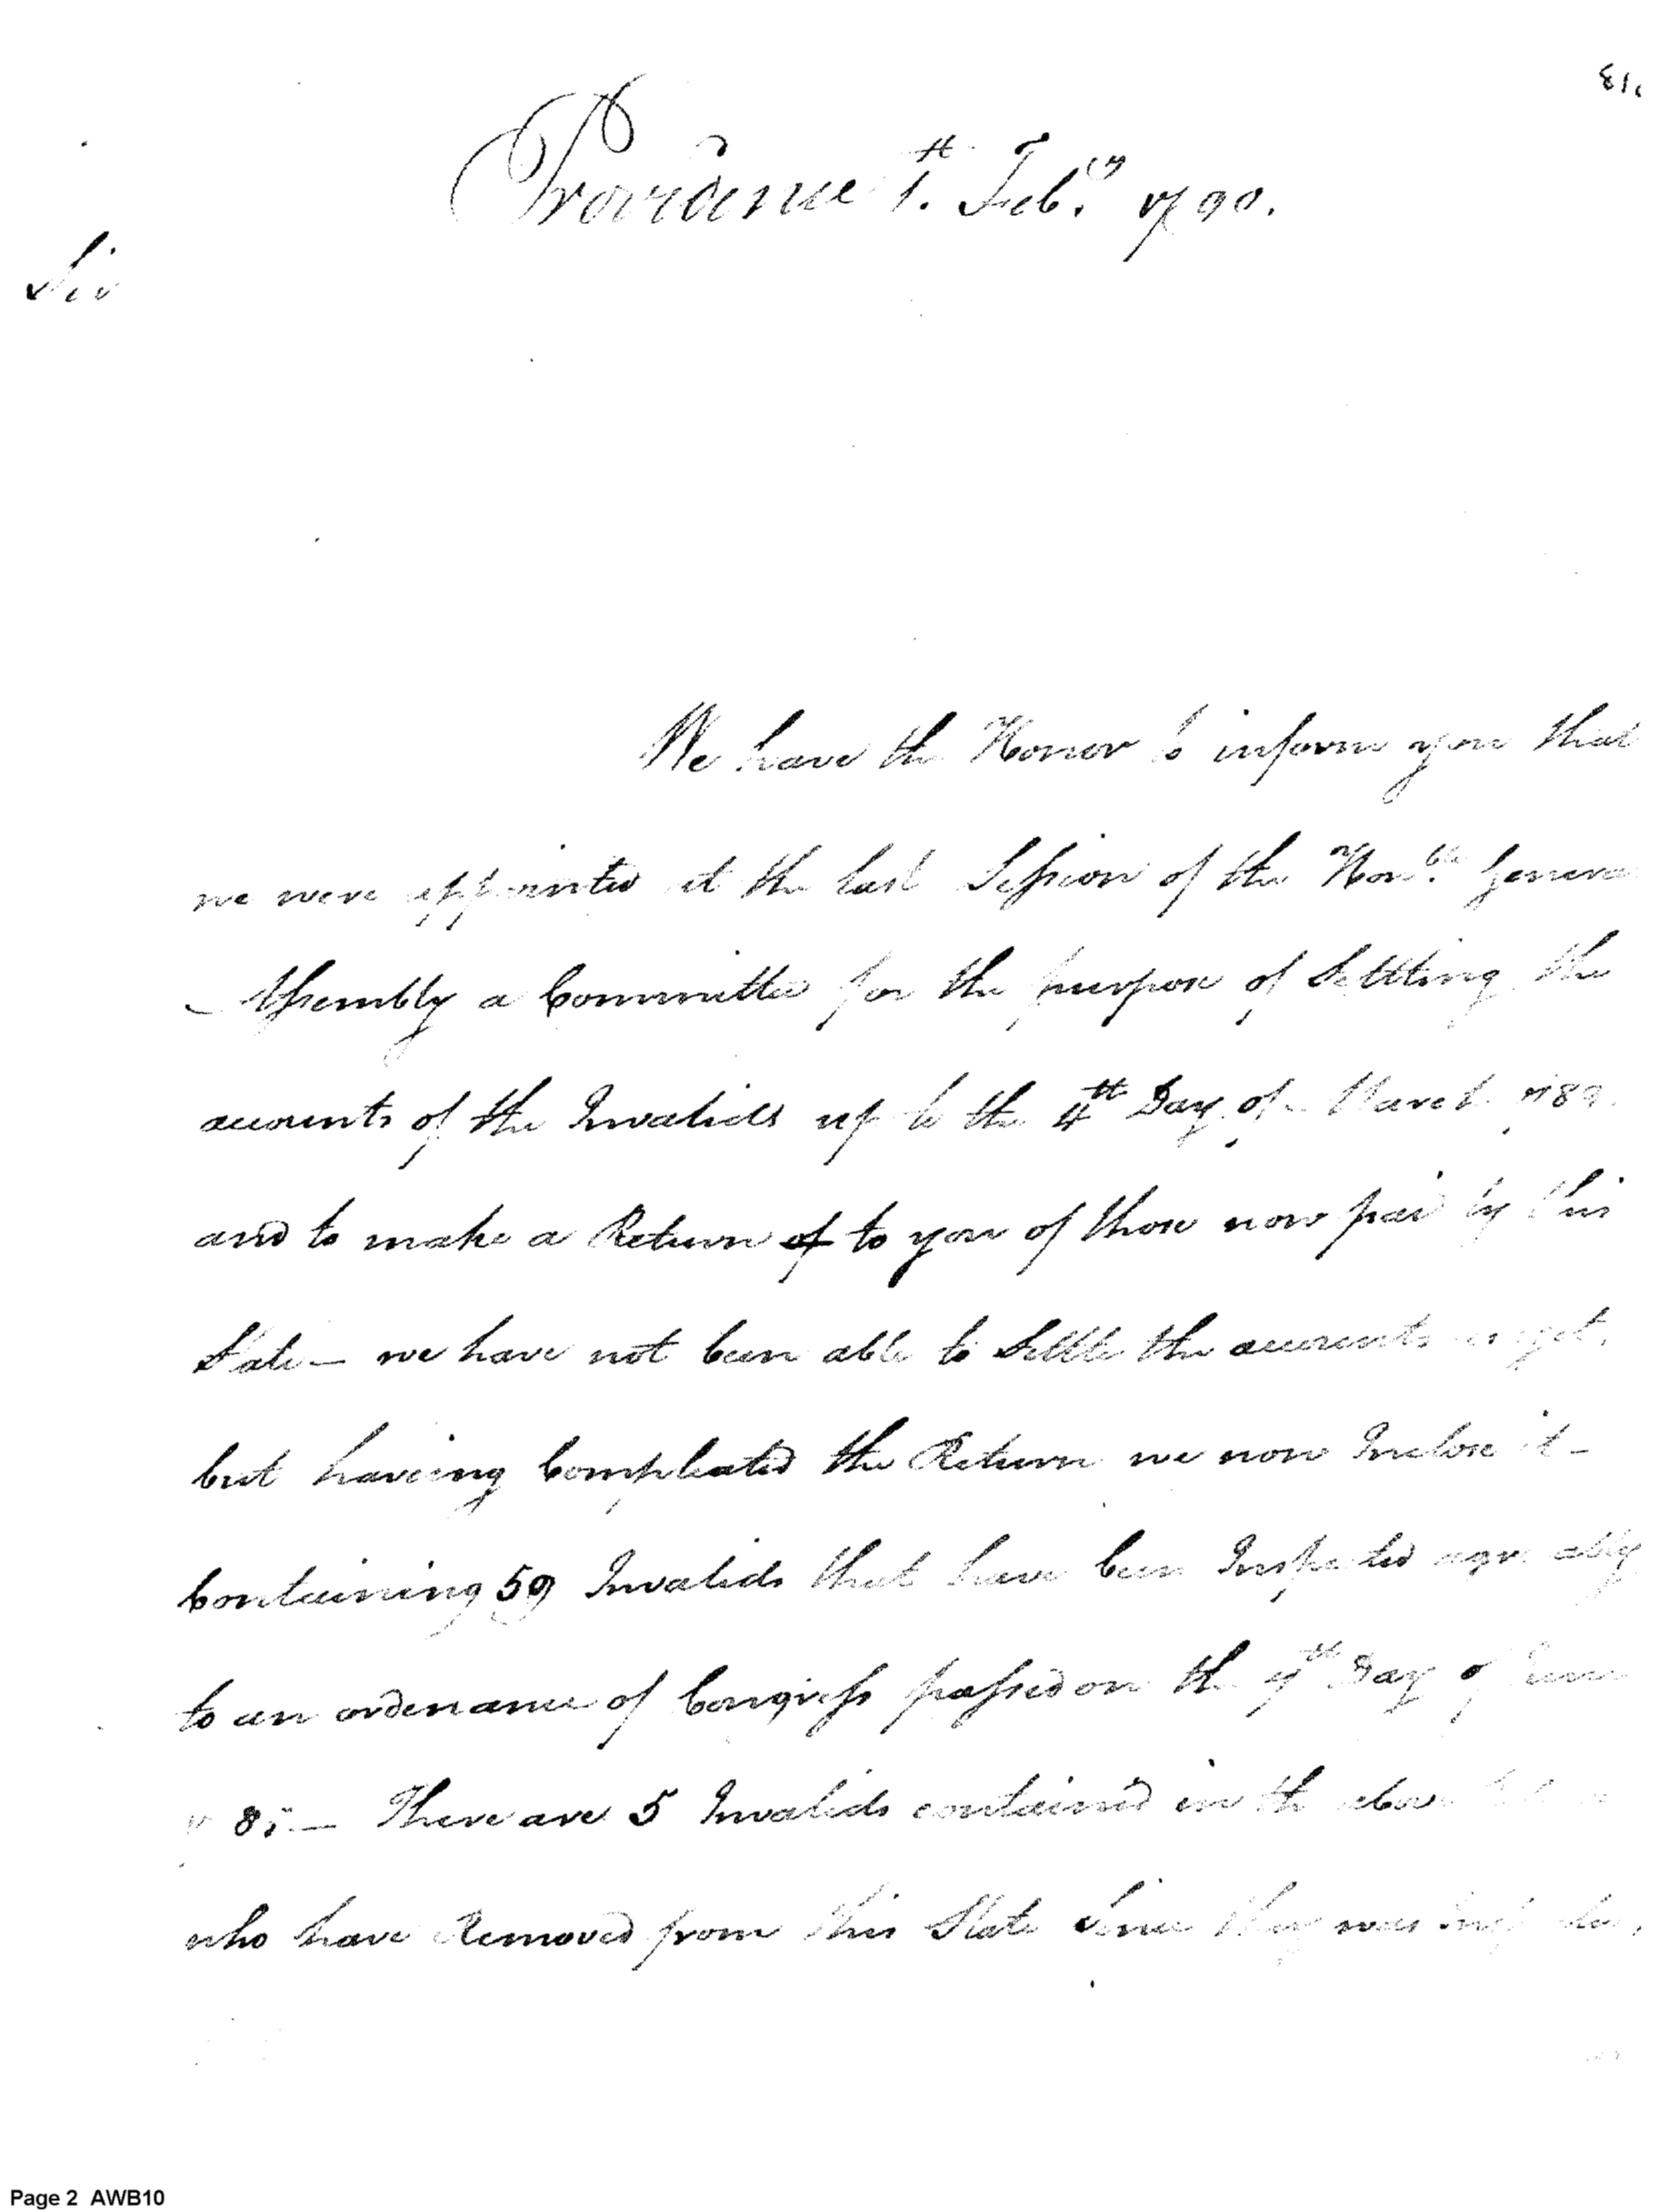 Providence 1.st Feb.ry 1790.
Sir
We have the Honor to inform you that
we were appointed at the last Session of the Hon.ble General
Assembly a Committee for the purpose of Settling the
accounts of the Invalids up to the 4th Day of March 1789.
and to make a Return of to you of those now paid by this
State — we have not been able to Settle the accounts as yet,
but haveing Compleated the Return we now Inclose it —
Containing 59 Invalids that have been Inspected agreeably
to an ordenance of Congress passed on the 7th Day of June
85 — There are 5 Invalids contained in the above
who have Removed from this State Since they was Inspected,
Page 2 AWB10